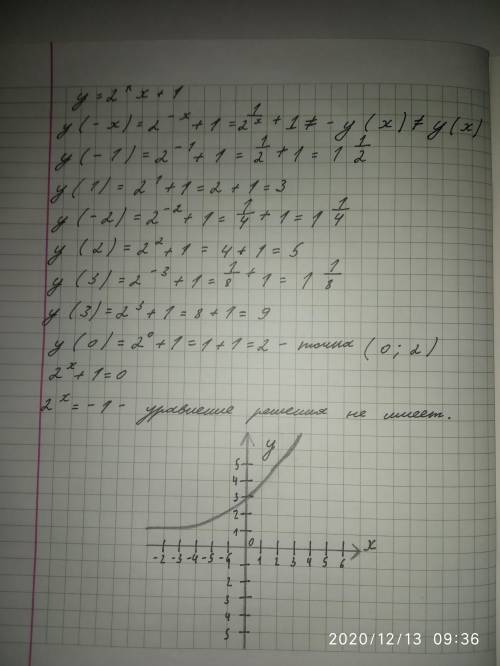 y = 2^x + 1
y(-x) = 2^-x + 1 = 2^1/x + 1 ≠ - y(x) ≠ y(x)
y(-1) = 2^-1 + 1 = 1/2 + 1 = 1 1/2
y(1) = 2^1 + 1 = 2 + 1 = 3
y(-2) = 2^-2 + 1 = 1/4 + 1 = 1 1/4
y(2) = 2^2 + 1 = 4 + 1 = 5
y(3) = 2^-3 + 1 = 1/8 + 1 = 1 1/8
y(3) = 2^3 + 1 = 8 + 1 = 9
y(0) = 2^0 + 1 = 1 + 1 = 2 - точка (0; 2)
2^x + 1 = 0
2^x = -1 - уравнение решения не имеет.
y
5
4
3
2
1
0
-2 -3 -4 -5 -6 1 2 3 4 5 6 x
2
3
4
5
2020/12/13 09:36